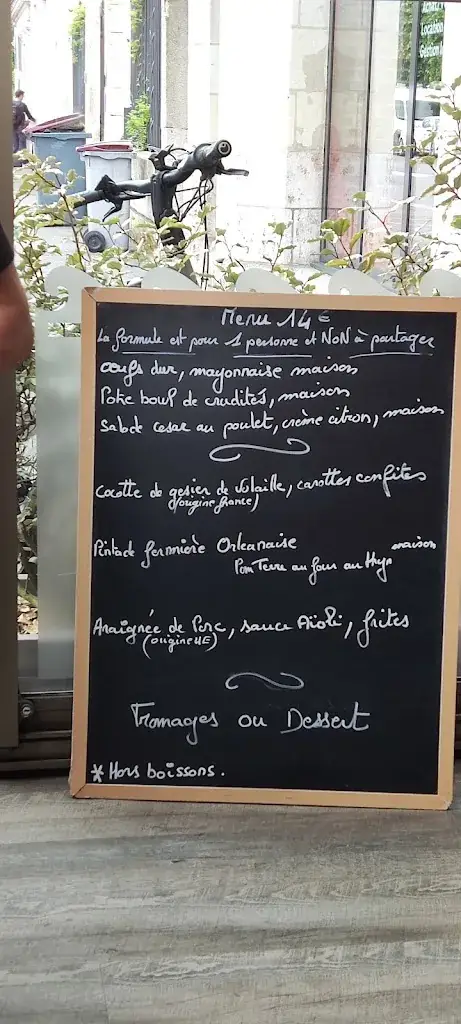 Achat
Location
Gestion
Menu 14€
La formule est pour 1 personne et NON à partager
œufs dur, mayonnaise maison
Poke boul de crudités, maison
Salade cesar au poulet, crème citron, maison
Cocotte de gesier de Volaille, carottes confites
(origine france)
Pintade fermière Orleanaise maison
Pom Terre au four au thym
Araignée de Porc, sauce Aïoli, frites
(origine UE)
Fromages ou Dessert
* Hors boissons.